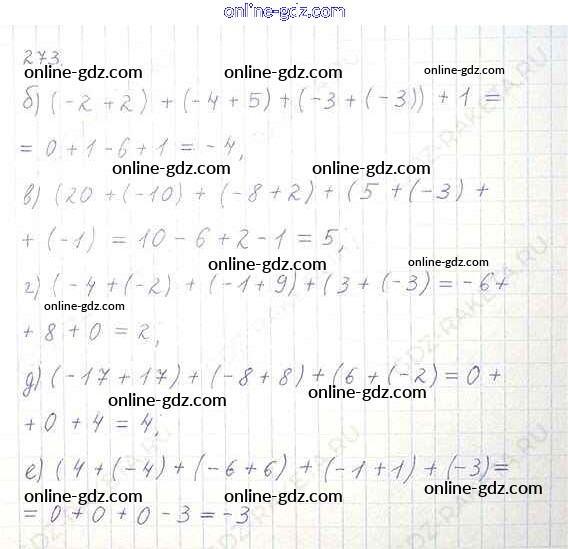 online-gdz.com
273.
online-gdz.com online-gdz.com online-gdz.com
б) (-2 + 2) + (-4 + 5) + (-3 + (-3)) + 1 =
= 0 + 1 - 6 + 1 = -4,
online-gdz.com online-gdz.com
в) (20 + (-10) + (-8 + 2) + (5 + (-3) +
+ (-1) = 10 - 6 + 2 - 1 = 5,
online-gdz.com online-gdz.com
г) (-4 + (-2) + (-1 + 9) + (3 + (-3) = -6 +
online-gdz.com
+ 8 + 0 = 2;
online-gdz.com
д) (-17 + 17) + (-8 + 8) + (6 + (-2) = 0 +
online-gdz.com online-gdz.com
+ 0 + 4 = 4;
online-gdz.com
е) (4 + (-4) + (-6 + 6) + (-1 + 1) + (-3) =
online-gdz.com online-gdz.com online-gdz.com
= 0 + 0 + 0 - 3 = -3
online-gdz.com online-gdz.com
GDZ-RAKETA.RU